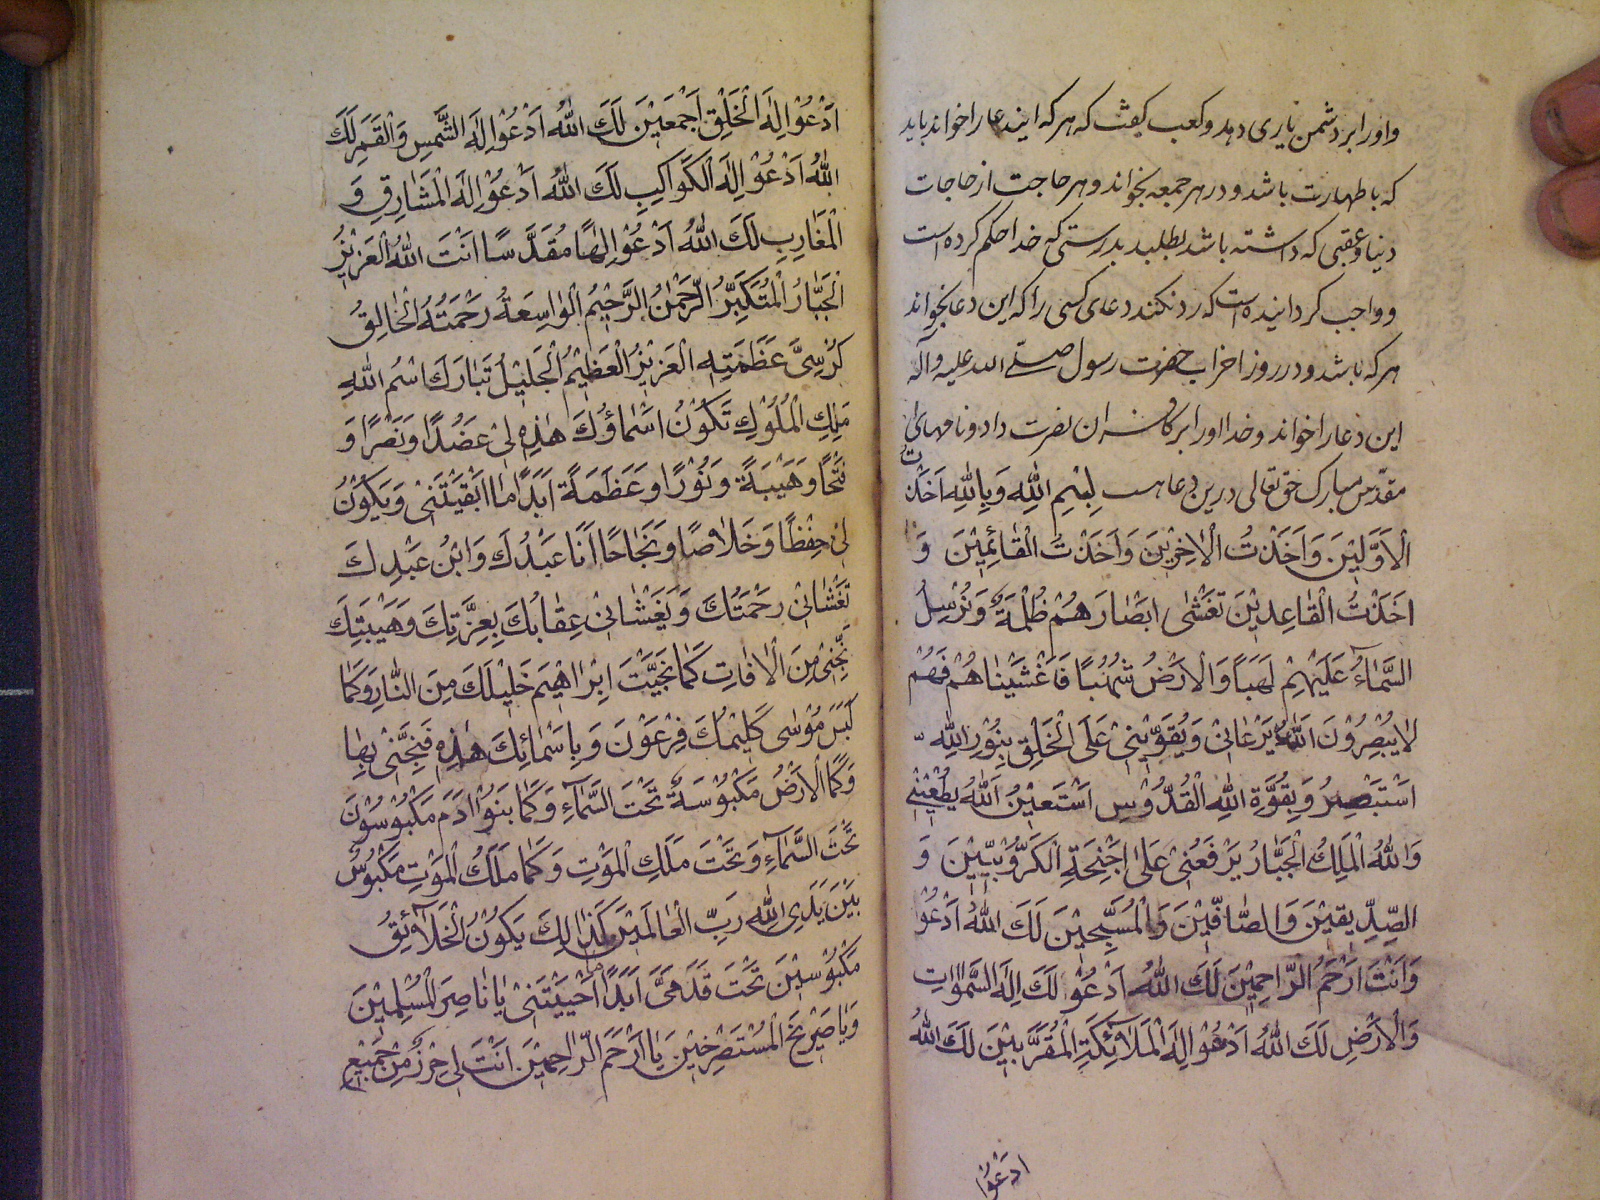 و او را بر دشمن یاری دهد و کعب گفت که هر که ایندعا را خواند باید
که با طهارت باشد و در هر جمعه بخواند و هر حاجت از حاجات
دنیا و عقبی که داشته باشد بطلبد بدرستی که خدا حکم کرده است
و واجب گردانیده است که رد نکند دعای کسی را که این دعا بخواند
هر که باشد و در روز احزاب حضرت رسول صلّی الله علیه و آله
این دعا را خواند و خدا او را بر کافران نصرت داد و نامهای
مقدّس مبارک حق تعالی درین دعا هست بِسْمِ اللّٰهِ وَبِاللّٰهِ اَخَذْتُ
الْاَوَّلِيْنَ وَاَخَذْتُ الْاٰخِرِيْنَ وَاَخَذْتُ الْقٰائِمِيْنَ وَ
اَخَذْتُ الْقٰاعِدِيْنَ تَغَشّٰى اَبْصٰارَهُمْ ظُلْمَةٌ وَنُرْسِلُ
السَّمٰاۤءُ عَلَيْهِمْ لَهَبًا وَالْاَرْضُ شُهُبًا فَاَغْشَيْنٰاهُمْ فَهُمْ
لٰا يُبْصِرُوْنَ اَللّٰهُ يَرْعٰانِىْ وَيُقَوِّيْنِىْ عَلَى الْخَلْقِ بِنُوْرِ اللّٰهِ
اَسْتَبْصِرُ وَبِقُوَّةِ اللّٰهِ الْقُدُّوْسِ اَسْتَعِيْنُ اَللّٰهُ يُعْطِيْنِىْ
وَاللّٰهُ الْمَلِكُ الْجَبّٰارُ يَرْفَعُنِىْ عَلٰى اَجْنِحَةِ الْكَرُّوْبِيّيْنَ وَ
الصِّدِّيْقِيْنَ وَالصّٰافِّيْنَ وَالْمُسَبِّحِيْنَ لَكَ اللّٰهُ اَدْعُوْ
وَاَنْتَ اَرْحَمُ الرّٰاحِمِيْنَ لَكَ اللّٰهُ اَدْعُوْ لَكَ اِلٰهَ السَّمٰوٰاتِ
وَالْاَرْضِ لَكَ اللّٰهُ اَدْعُوْ اِلٰهَ الْمَلٰاۤئِكَةِ الْمُقَرَّبِيْنَ لَكَ اللّٰهُ
ادْعُوْا
اَدْعُوْ اِلٰهَ الْخَلْقِ اَجْمَعِيْنَ لَكَ اللّٰهُ اَدْعُوْ اِلٰهَ الشَّمْسِ وَالْقَمَرِ لَكَ
اللّٰهُ اَدْعُوْ اِلٰهَ الْكَوٰاكِبِ لَكَ اللّٰهُ اَدْعُوْ اِلٰهَ الْمَشٰارِقِ وَ
الْمَغٰارِبِ لَكَ اللّٰهُ اَدْعُوْ اِلٰهًا مُقَدَّسًا اَنْتَ اللّٰهُ الْعَزِيْزُ
الْجَبّٰارُ الْمُتَكَبِّرُ الرَّحْمٰنُ الرَّحِيْمُ الْوٰاسِعَةُ رَحْمَتُهُ الْخٰالِقُ
كُرْسِىَّ عَظَمَتِهِ الْعَزِيْزُ الْعَظِيْمُ الْجَلِيْلُ تَبٰارَكَ اسْمُ اللّٰهِ
مَلِكِ الْمُلُوْكِ تَكُوْنُ اَسْمٰاؤُكَ هٰذِهِ لِىْ عَضُدًا وَنَصْرًا وَ
فَتْحًا وَهَيْبَةً وَنُوْرًا وَعَظَمَةً اَبَدًا مٰا اَبْقَيْتَنِىْ وَيَكُوْنُ
لِىْ حِفْظًا وَخَلٰاصًا وَنَجٰاحًا اَنَا عَبْدُكَ وَابْنُ عَبْدِكَ
تَغْشٰانِىْ رَحْمَتُكَ وَيَغْشٰانِىْ عِقٰابُكَ بِعِزَّتِكَ وَهَيْبَتِكَ
نَجِّنِىْ مِنَ الْاٰفٰاتِ كَمٰا نَجَّيْتَ اِبْرٰاهِيْمَ خَلِيْلَكَ مِنَ النّٰارِ وَكَمٰا
كَبَسَ مُوْسٰى كَلِيْمُكَ فِرْعَوْنَ وَبِاَسْمٰائِكَ هٰذِهِ فَنَجِّنِىْ بِهٰا
وَكَمَا الْاَرْضُ مَكْبُوْسَةٌ تَحْتَ السَّمٰاۤءِ وَكَمٰا بَنُوْ اٰدَمَ مَكْبُوْسُوْنَ
تَحْتَ السَّمٰاۤءِ وَتَحْتَ مَلَكِ الْمَوْتِ وَكَمٰا مَلَكُ الْمَوْتِ مَكْبُوْسٌ
بَيْنَ يَدَىِ اللّٰهِ رَبِّ الْعٰالَمِيْنَ كَذٰالِكَ يَكُوْنُ الْخَلٰاۤئِقُ
مَكْبُوْسِيْنَ تَحْتَ قَدَمَىَّ اَبَدًا مٰا اَحْيَيْتَنِىْ يٰا نٰاصِرَ الْمُسْلِمِيْنَ
وَيٰا صَرِيْخَ الْمُسْتَصْرِخِيْنَ يٰا اَرْحَمَ الرّٰاحِمِيْنَ اَنْتَ لِىْ حِرْزٌ مِنْ جَمِيْعِ